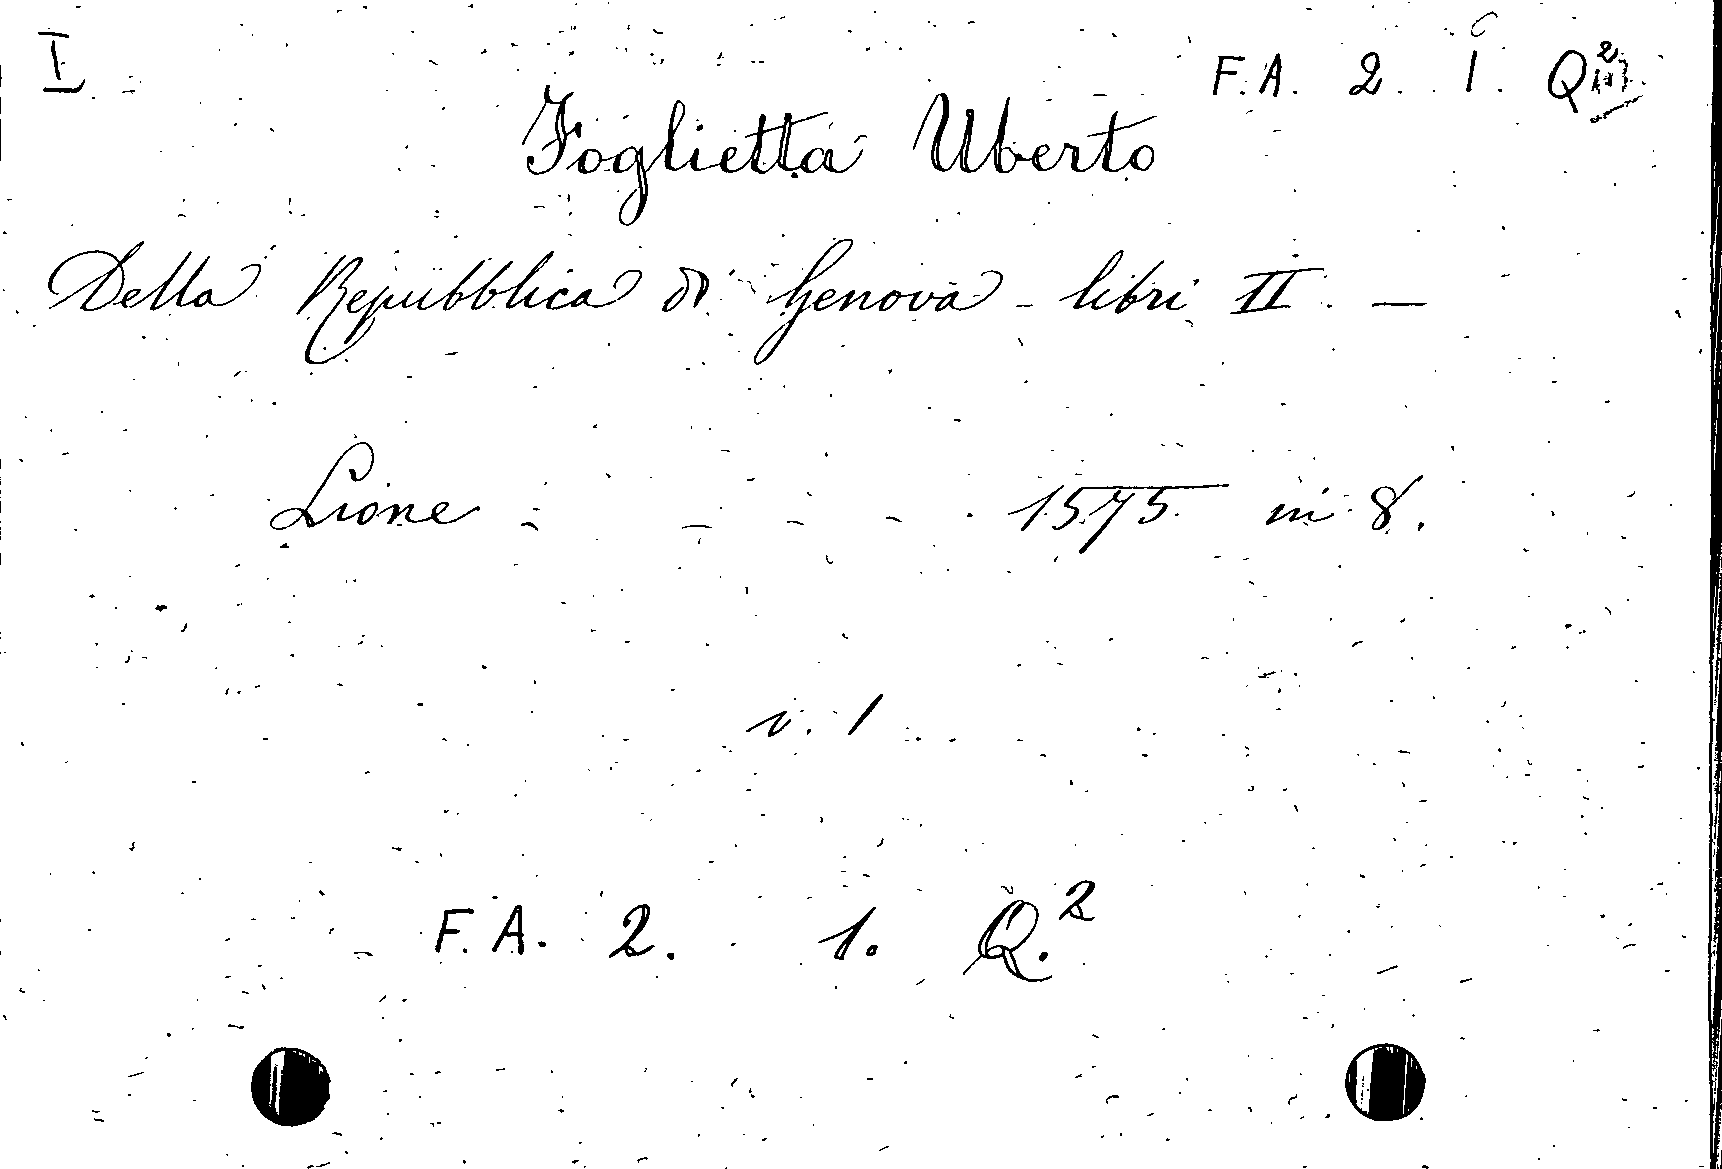 I
F. A. 2. 1. Q²
Foglietta Uberto
Della Repubblica di Genova - libri II. —
Lione - - - - 1575 in 8.
v. 1
F. A. 2. 1. Q.²